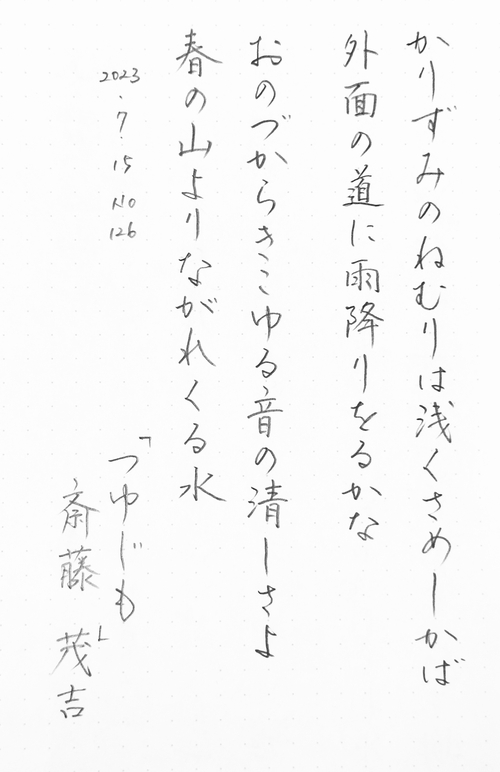 かりずみのねむりは浅くさめしかば
外面の道に雨降りをるかな
おのづからきこゆる音の清しさよ
春の山よりながれくる水
2023.7.15 No 126
「つゆじも」
斎藤 茂吉